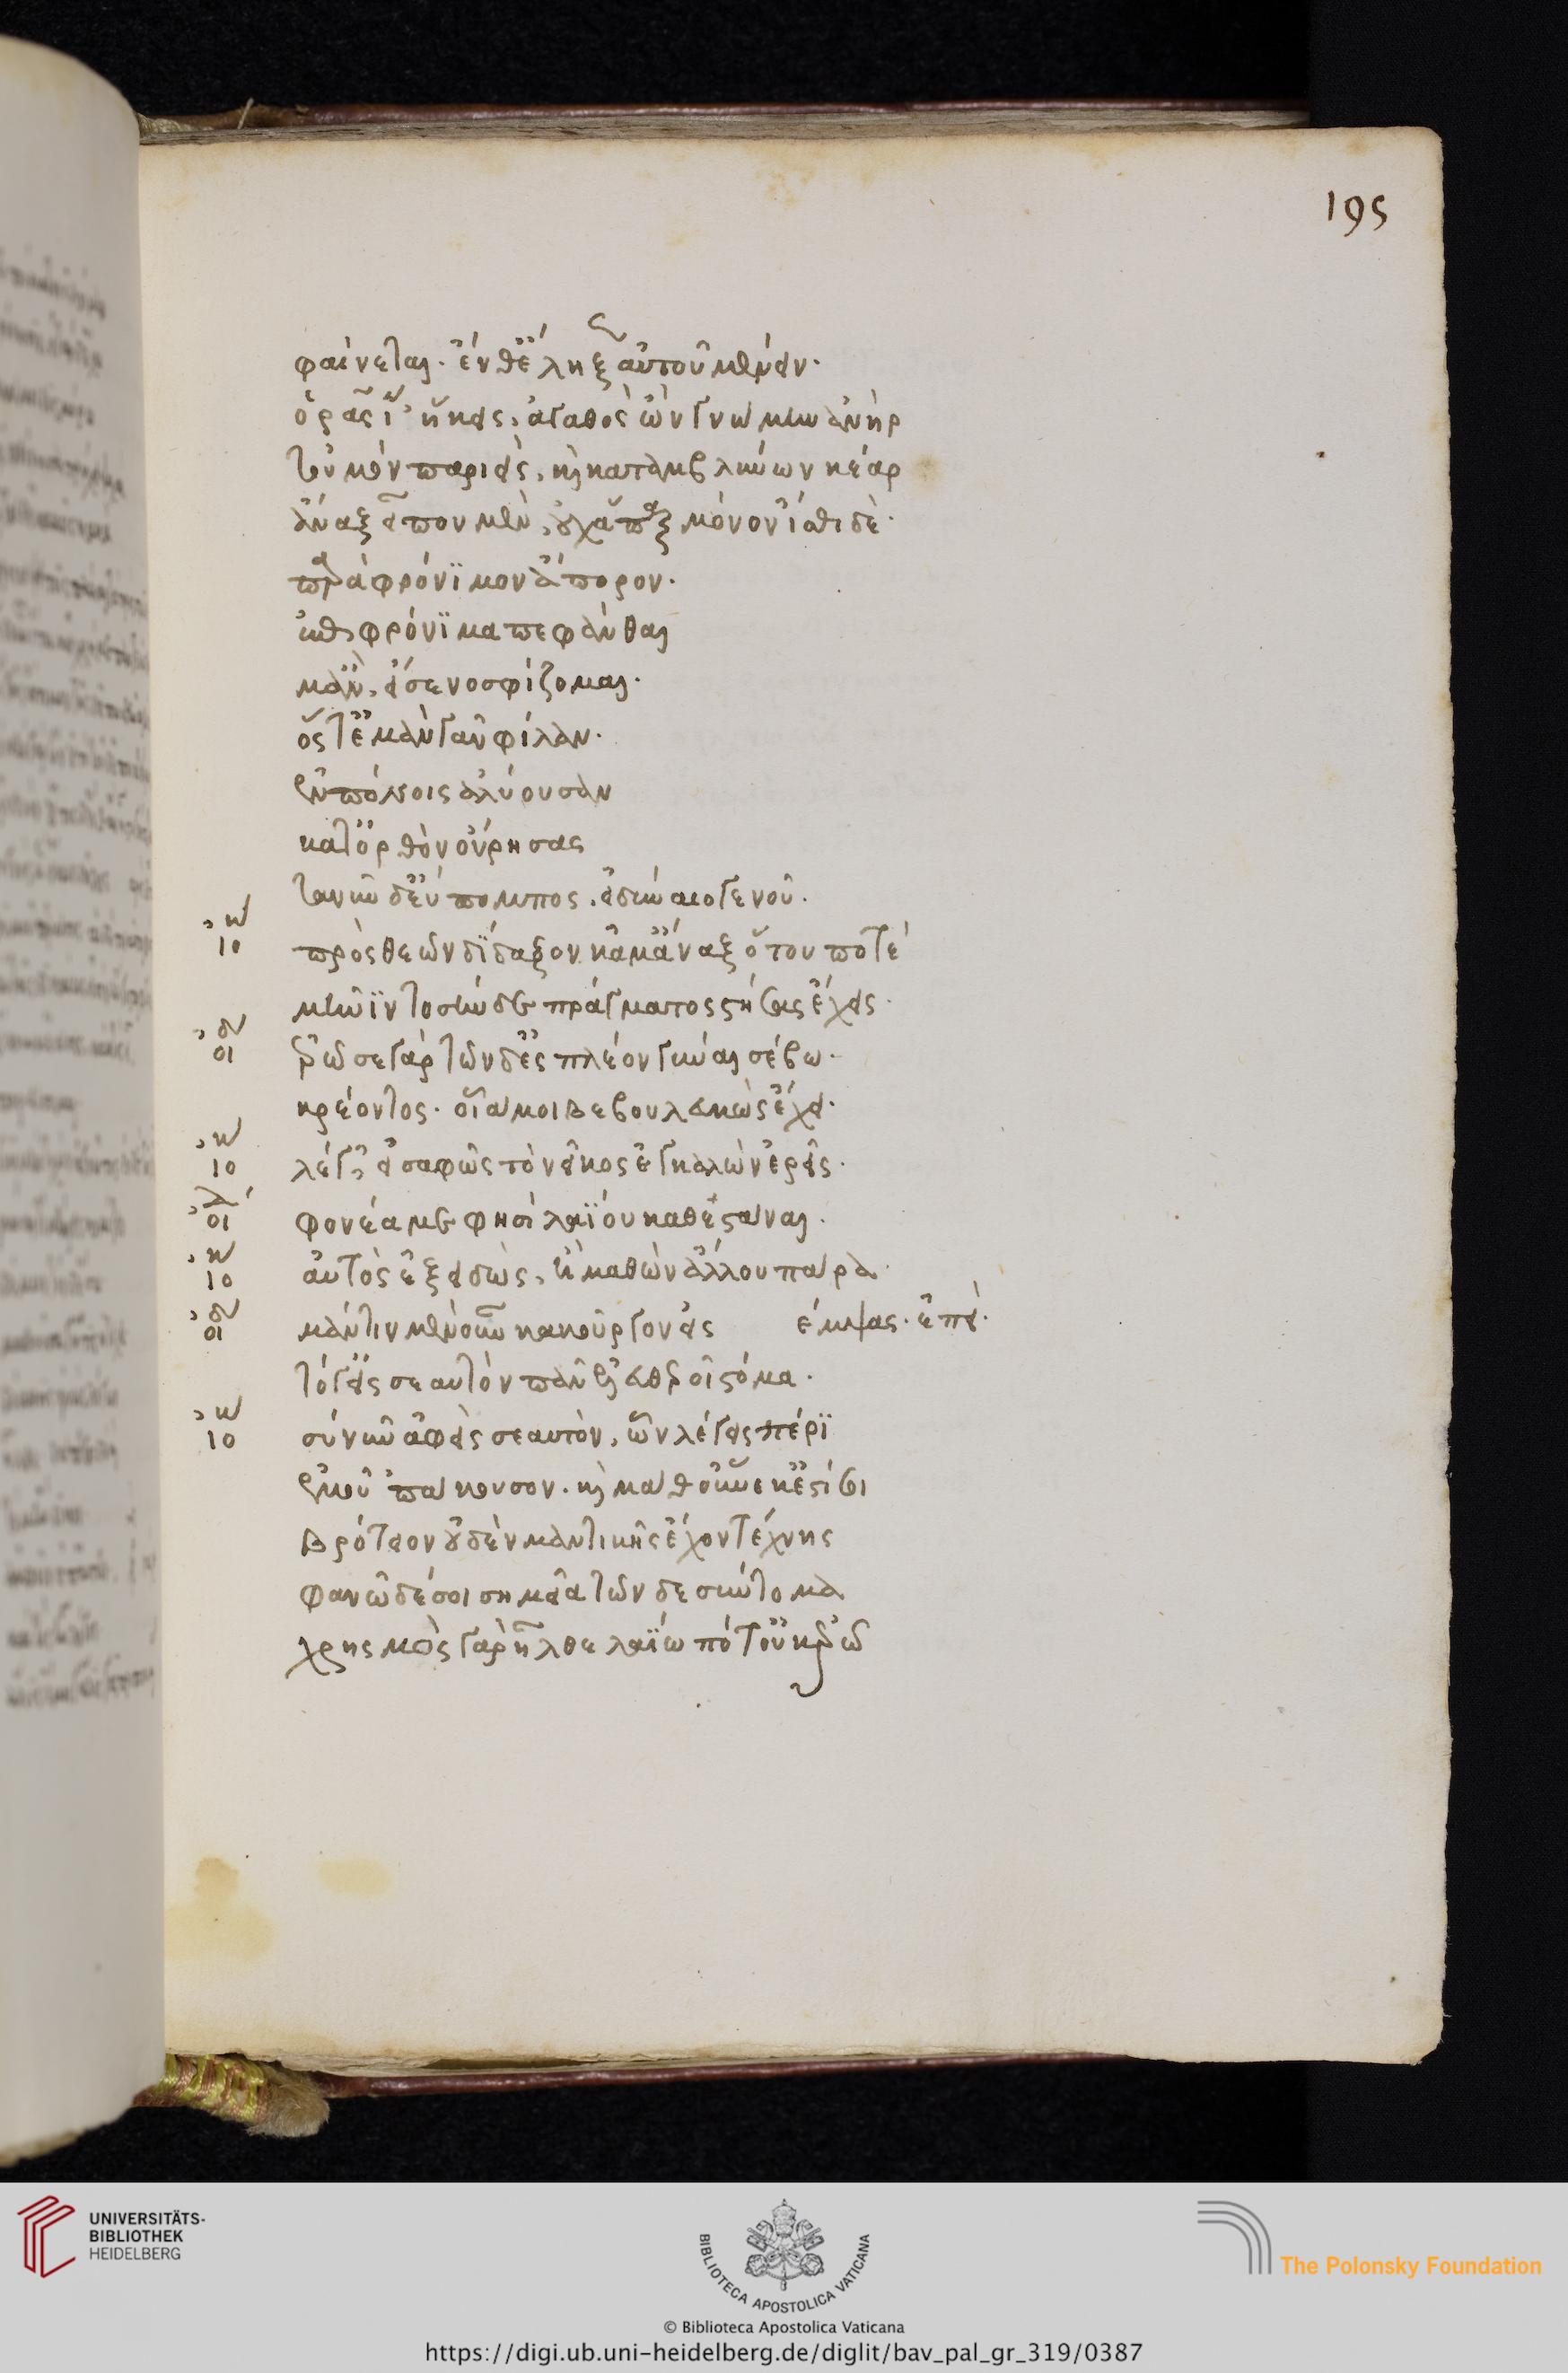 195
φαίνεται. ἔνθ' ἔληξεν αὐτοῦ μένειν.
ὁρᾷς ἵν' ἥκεις, ἀγαθὸς ὢν γνώμην ἀνὴρ
τοὐμὸν παριεὶς, καὶ καταμβλύνων κέαρ
ἄναξ εἶπον μὲν, οὐχ ἅπαξ μόνον ἴσθι δὲ.
παραφρόνιμον ἄπορον.
ἐπὶ φρόνιμα πεφάνθαι
μ' ἂν, εἴ σε νοσφίζομαι.
ὅς τ' ἐμὰν γᾶν φίλαν.
ἐν πόνοις ἀλύουσαν
κατ' ὀρθὸν οὔρησας
τανῦν δ' εὔπομπος, εἰ δύναιο γενοῦ.
ἰο πρὸς θεῶν δίδαξον κἄμ' ἄναξ ὅτου ποτέ
μῆνιν τοσήνδε πράγματος στήσας ἔχεις.
οἰ ἐρῶ σε γὰρ τῶνδ' ἐς πλέον γύναι σέβω.
κρέοντος. οἷά μοι βεβουλευκὼς ἔχει.
ἰο λέγ', εἰ σαφῶς τὸ νεῖκος ἐγκαλῶν ἐρεῖς.
οἰ φονέα με φησὶ λαΐου καθεστάναι.
ἰο αὐτὸς ἐξειδὼς, ἢ μαθὼν ἄλλου πάρα.
οἰ μάντιν μὲν οὖν κακοῦργον εἰς έμψας. ἐπεὶ.
τό γ' εἰς σεαυτὸν πᾶν ἐλευθεροῖ στόμα.
ἰο σύ νῦν ἀφεὶς σεαυτὸν, ὧν λέγεις πέρι
ἐμοῦ 'πάκουσον. καὶ μάθ' οὕνεκ' ἔστί σοι
βρότειον οὐδὲν μαντικῆς ἔχον τέχνης
φανῶ δέ σοι σημεῖα τῶνδε σύντομα
χρησμὸς γὰρ ἦλθε λαΐω πότ' οὐκ ἐρῶ
UNIVERSITÄTS-
BIBLIOTHEK
HEIDELBERG
BIBLIOTECA APOSTOLICA VATICANA
The Polonsky Foundation
© Biblioteca Apostolica Vaticana
https://digi.ub.uni-heidelberg.de/diglit/bav_pal_gr_319/0387